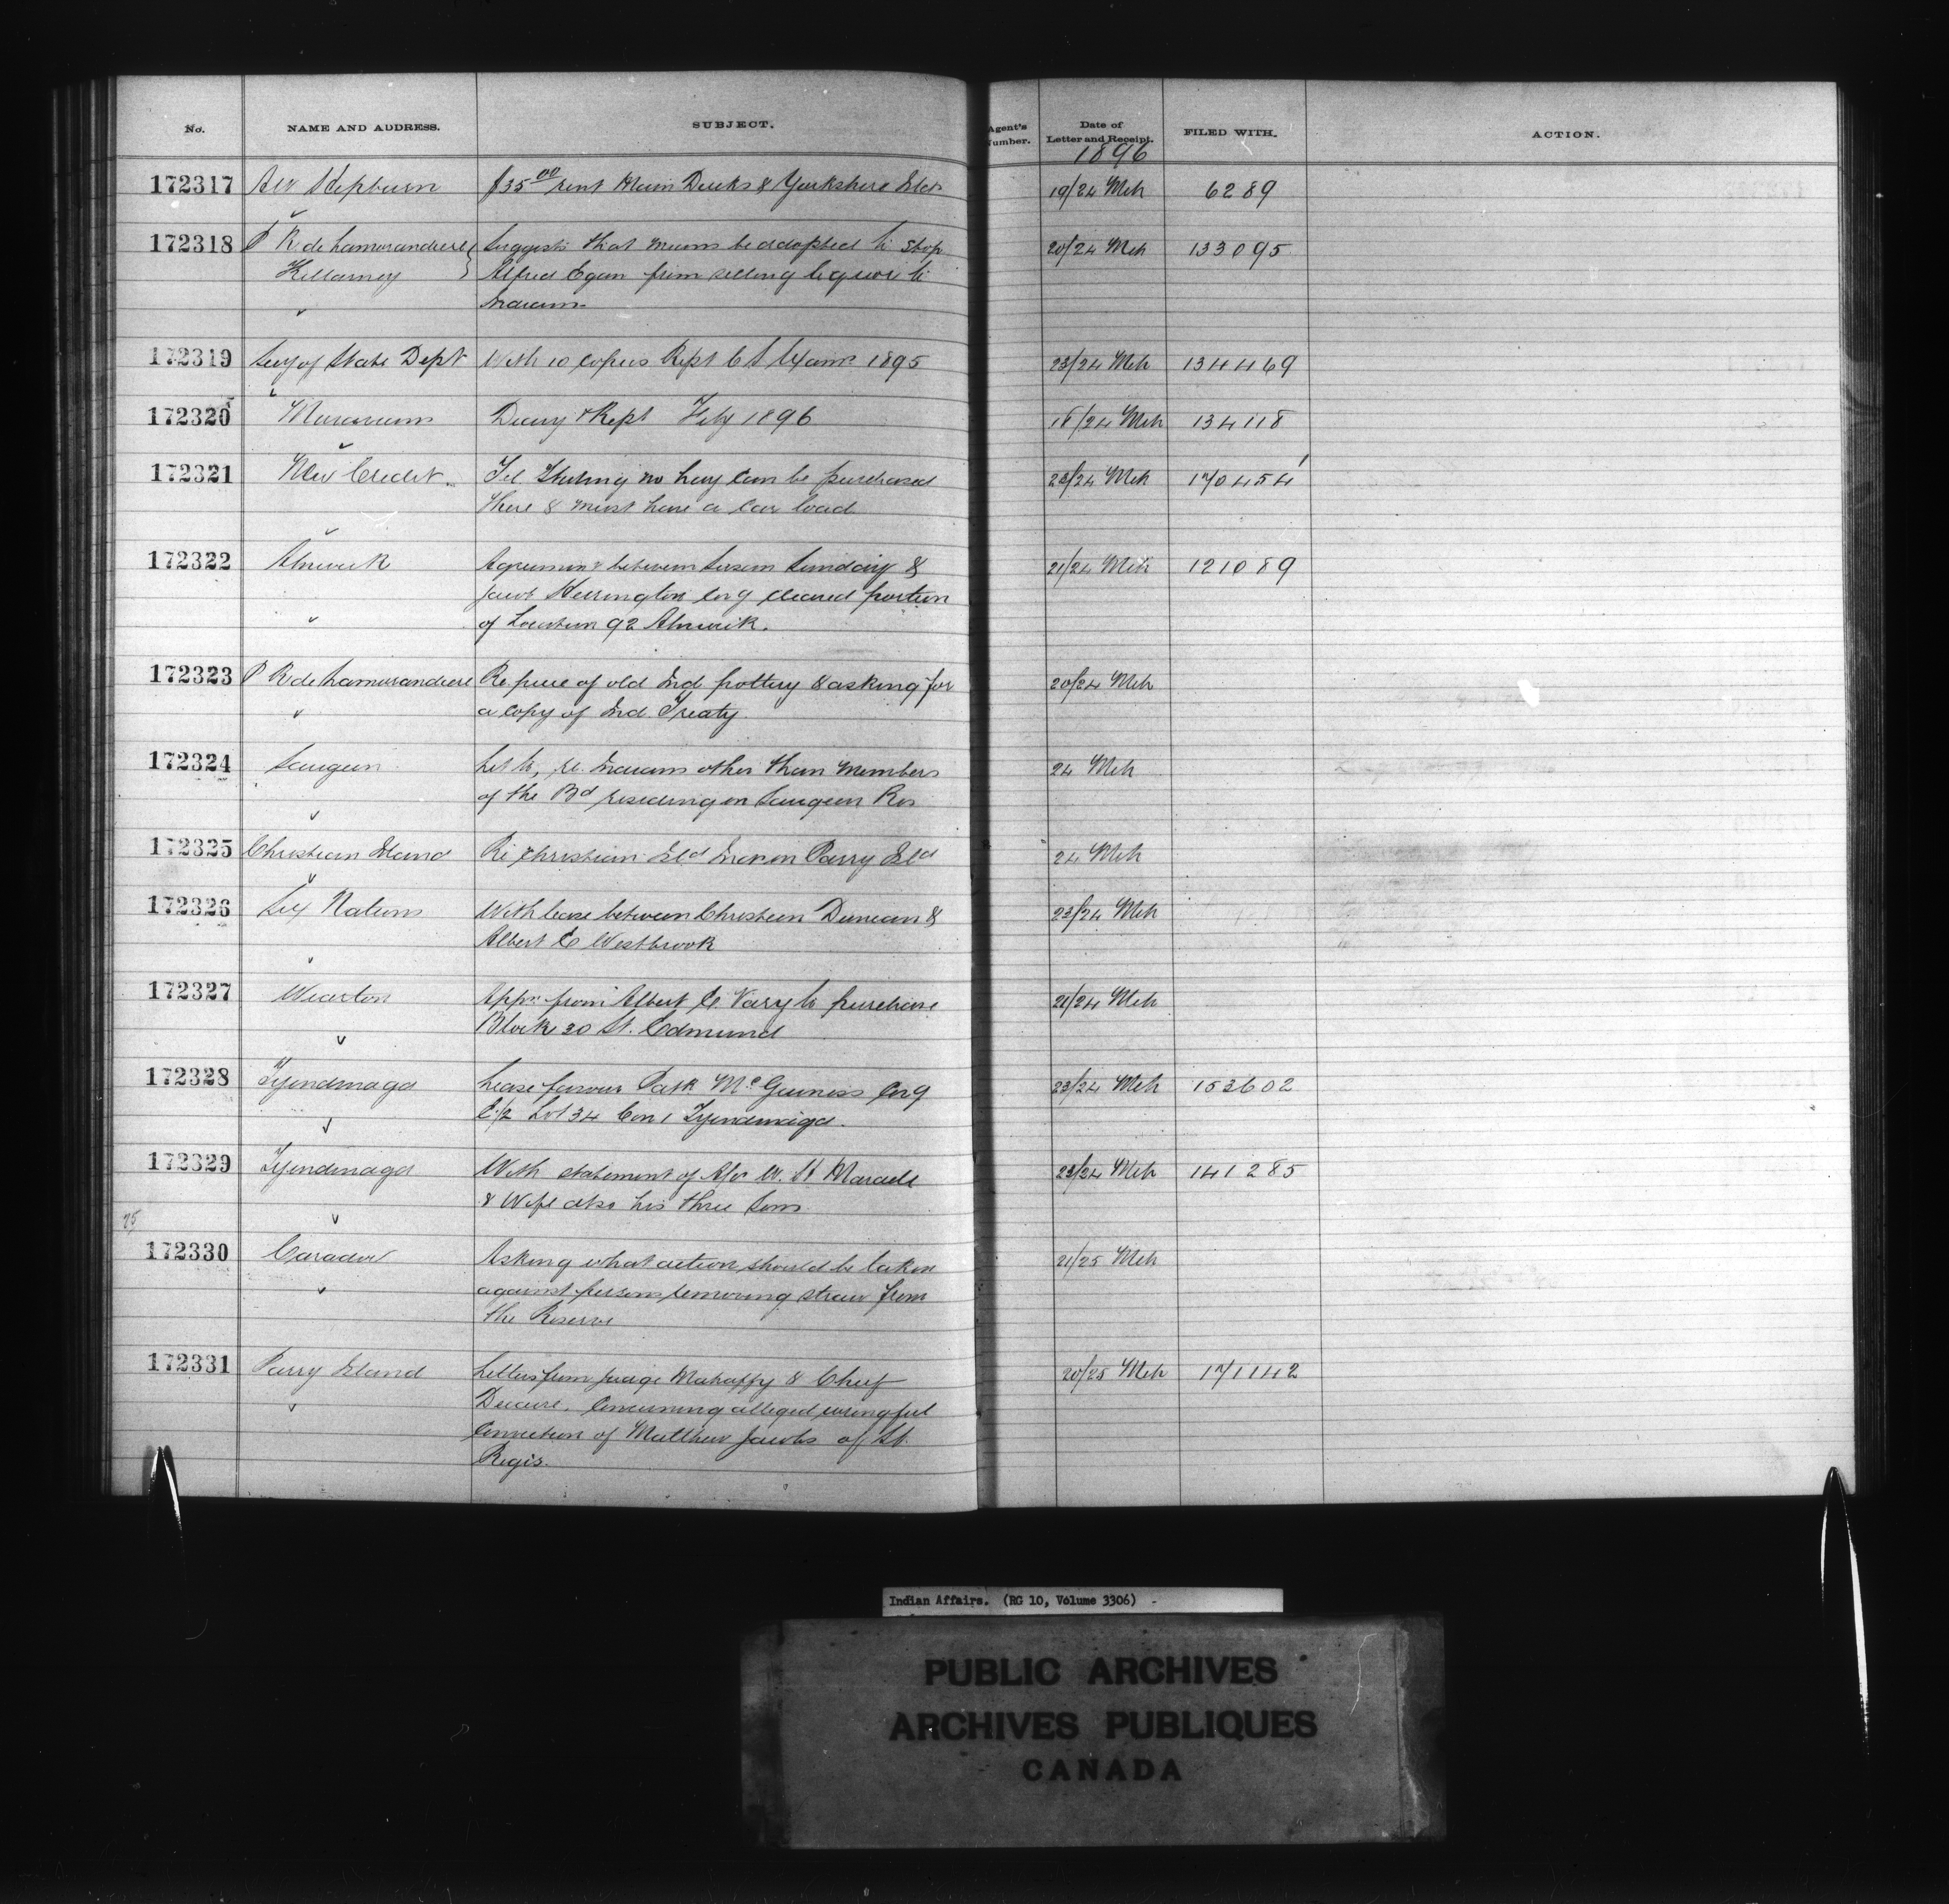 No. NAME AND ADDRESS. SUBJECT. Agent's Number. Date of Letter and Receipt. FILED WITH. ACTION.
1896
172317 AW Hepburn $35.00 rent Main Ducks & Yorkshire Ilds 19/24 Mch 6289
172318 P R de Lamorandiere Suggests that means be adopted to stop 20/24 Mch 133095
Killarney Alfred Egan from selling liquor to
Indians
172319 Secy of State Dept With 10 copies Rept C S Exam 1895 23/24 Mch 134469
172320 Diary & Rept Feby 1896 18/24 Mch 134118
172321 New Credit Tel. Stating no hay can be purchased 23/24 Mch 170454
there & must have a car load
172322 Alnwick Agreement between Susan Sunday & 21/24 Mch 121089
Jacob Herrington cov'g cleared portion
of Location 92 Alnwick.
172323 P R de Lamorandiere Re piece of old Ind. pottery & asking for 20/24 Mch
a copy of Ind. Treaty.
172324 Saugeen Let to, re Indians other than members 24 Mch
of the Bd residing on Saugeen Res
172325 Christian Island Re Christian Ild Inds on Parry Ild 24 Mch
172326 Six Nations With lease between Christeen Duncan & 23/24 Mch
Albert E Westbrook
172327 Wiarton Appn from Albert E. Vary to purchase 21/24 Mch
Block 30 St. Edmund
172328 Tyendinaga Lease favour Patk McGuiness cov'g 23/24 Mch 153602
E 1/2 Lot 34 Con 1 Tyendinaga.
172329 Tyendinaga With statement of W. H Maracle 23/24 Mch 141285
& Wife also his three sons
25
172330 Caradoc Asking what action should be taken 21/25 Mch
against persons removing straw from
the Reserve
172331 Parry Island Letters from Judge Mahaffy & Chief 20/25 Mch 171142
concerning alleged wrongful
conviction of Matthew Jacobs of St.
Regis.
Indian Affairs. (RG 10, Volume 3306) -
PUBLIC ARCHIVES
ARCHIVES PUBLIQUES
CANADA